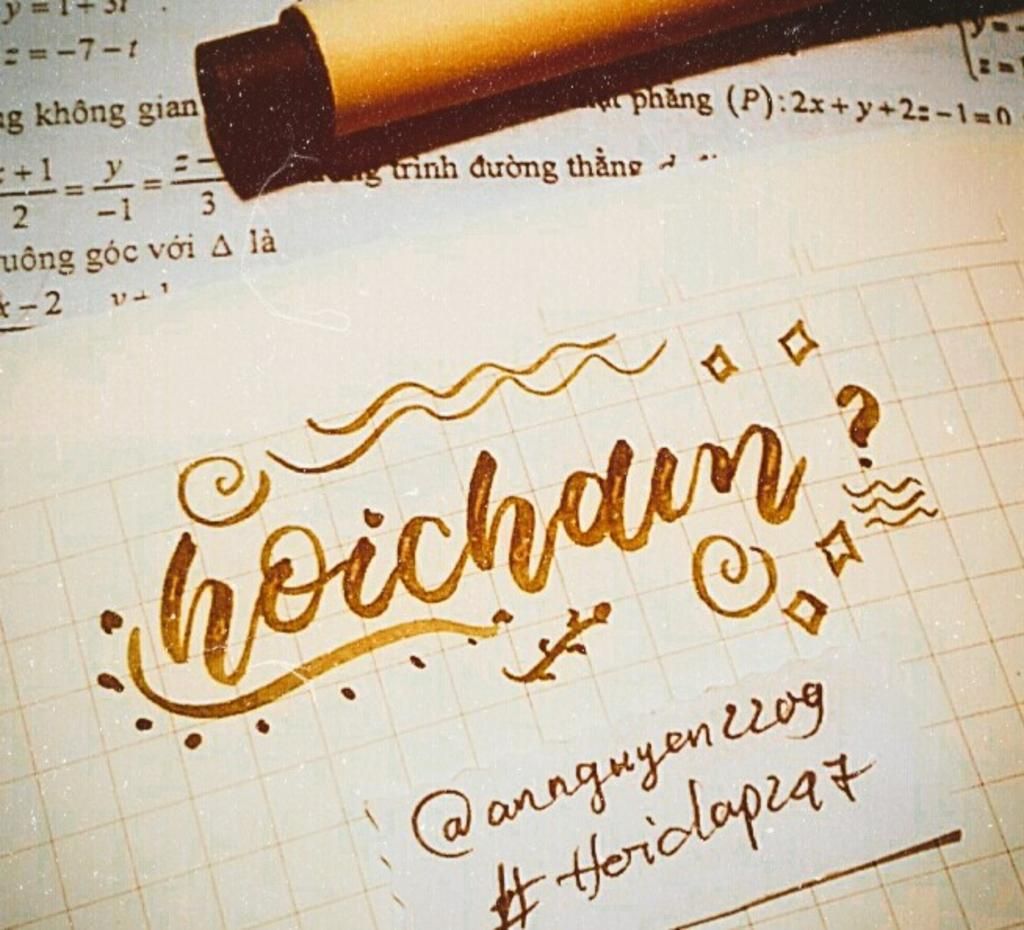 y = 1 + 3t
z = −7 − t
ng không gian phẳng (P): 2x + y + 2z − 1 = 0
+ 1 / 2 = y / −1 = z − / 3 trình đường thẳng
uông góc với Δ là
x − 2 y + 1
hoichan?
@annguyen2209
#Hoidap247